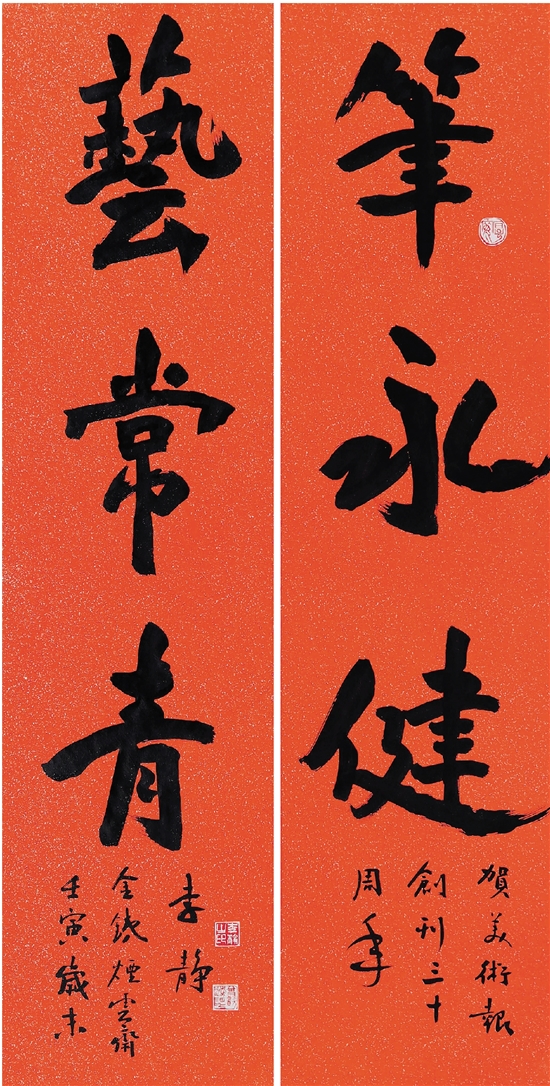 筆永健
賀美術報
創刊三十
周年
藝常青
李静
金錢煙雲齋
壬寅歲末